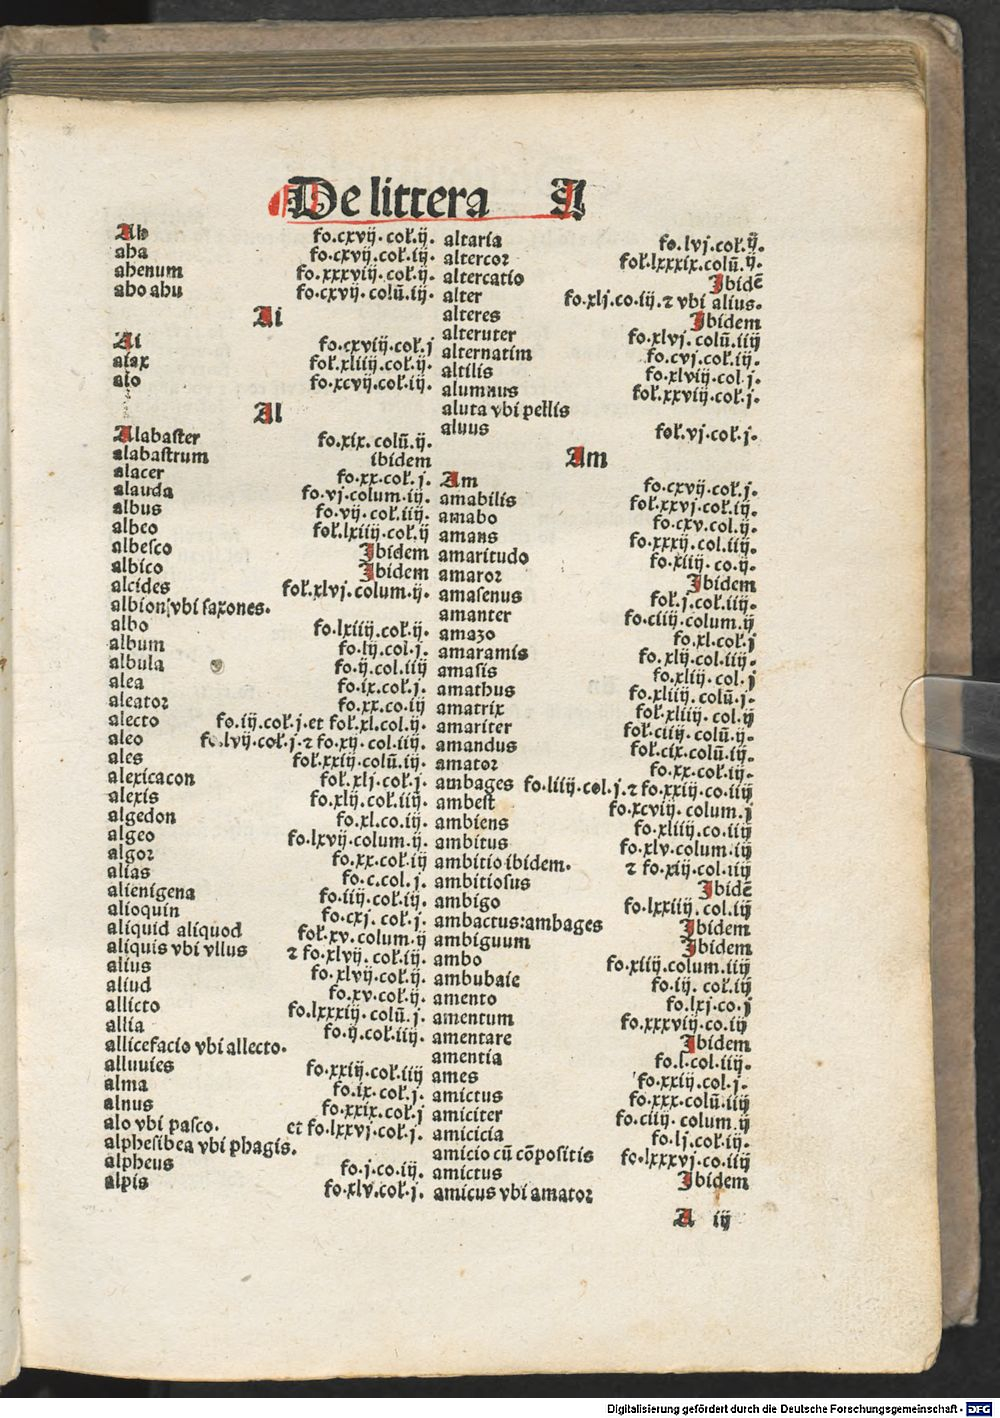 De littera A
Ah fo.cxvij.col.ij.
aha fo.cxvij.col.iij.
ahenum fo.xxxviij.col.ij.
aho ahu fo.cxvij.colū.iij.
Ai
Ai fo.cxviij.col.j
aiax fol.xliij.col.ij.
aio fo.xcvij.col.iij.
Al
Alabaster fo.xix.colū.ij.
alabastrum ibidem
alacer fo.xx.col.j.
alauda fo.vj.colum.iij.
albus fo.vij.col.iiij.
albeo fol.lxiiij.col.ij
albesco Ibidem
albico Ibidem
alcides fol.xlvj.colum.ij.
albion vbi saxones.
albo fo.lxiiij.col.ij.
album fo.lij.col.j.
albula fo.ij.col.iiij
alea fo.ix.col.j.
aleator fo.xx.co.iij
alecto fo.iij.col.j.et fol.xl.col.ij.
aleo fo.lvij.col.j.⁊ fo.xij.col.iij.
ales fol.xxiij.colū.iij.
alexicacon fol.xlj.col.j.
alexis fo.xlij.col.iiij.
algedon fo.xl.co.iij.
algeo fo.lxvij.colum.ij.
algor fo.xx.col.iij
alias fo.c.col.j.
alienigena fo.iij.col.iij.
alioquin fo.cxj.col.j.
aliquid aliquod fol.xv.colum.ij
aliquis vbi vllus ⁊ fo.xlvij.col.iij.
alius fo.xlvij.col.ij.
aliud fo.xv.col.ij.
allicto fo.lxxxiij.colū.j.
allia fo.ij.col.iiij.
allicefacio vbi allecto.
alluuies fo.xxiij.col.iiij
alma fo.ix.col.j.
alnus fo.xxix.col.j
alo vbi pasco. et fo.lxxvj.col.j.
alphesibea vbi phagis.
alpheus fo.j.co.iij.
alpis fo.xlv.col.j.
altaria fo.lvj.col.ij.
altercor fol.lxxxix.colū.ij.
altercatio Ibidē
alter fo.xlj.co.iij.⁊ vbi alius.
alteres Ibidem
alteruter fo.xlvj.colū.iiij
alternatim fo.cvj.col.iij.
altilis fo.xlviij.col j.
alumnus fol.xxviij.col.j.
aluta vbi pellis
aluus fol.vj.col.j.
Am
Am fo.cxvij.col.j.
amabilis fol.xxvj.col.iij.
amabo fo.cxv.col.ij.
amans fo.xxxij.col.iiij.
amaritudo fo.xiiij.co.ij.
amaror Ibidem
amasenus fol.j.col.iiij.
amanter fo.ciiij.colum.ij
amazo fo.xl.col.j
amaramis fo.xlij.col.iiij.
amasis fo.xliij.col.j
amathus fo.xliiij.colū.j.
amatrix fol.xliiij.col.ij
amariter fol.ciiij.colū.ij.
amandus fol.cix.colū.iij.
amator fo.xx.col.iij.
ambages fo.liiij.col.j.⁊ fo.xxiij.co.iiij
ambest fo.xcviij.colum.j
ambiens fo.xliiij.co.iiij
ambitus fo.xlv.colum.iij
ambitio ibidem. ⁊ fo.xiij.col.iiij
ambitiosus Ibidē
ambigo fo.lxxiiij.col.iij
ambactus:ambages Ibidem
ambiguum Ibidem
ambo fo.xiiij.colum.iiij
ambubaie fo.iij.col.iij
amento fo.lxj.co.j
amentum fo.xxxviij.co.iij
amentare Ibidem
amentia fo.l.col.iiij.
ames fo.xxiij.col.j.
amictus fo.xxx.colū.iiij
amiciter fo.ciiij.colum.ij
amicicia fo.lj.col.iij.
amicio cū cōpositis fo.lxxxvj.co.iiij
amictus Ibidem
amicus vbi amator
A iij
Digitalisierung gefördert durch die Deutsche Forschungsgemeinschaft - DFG